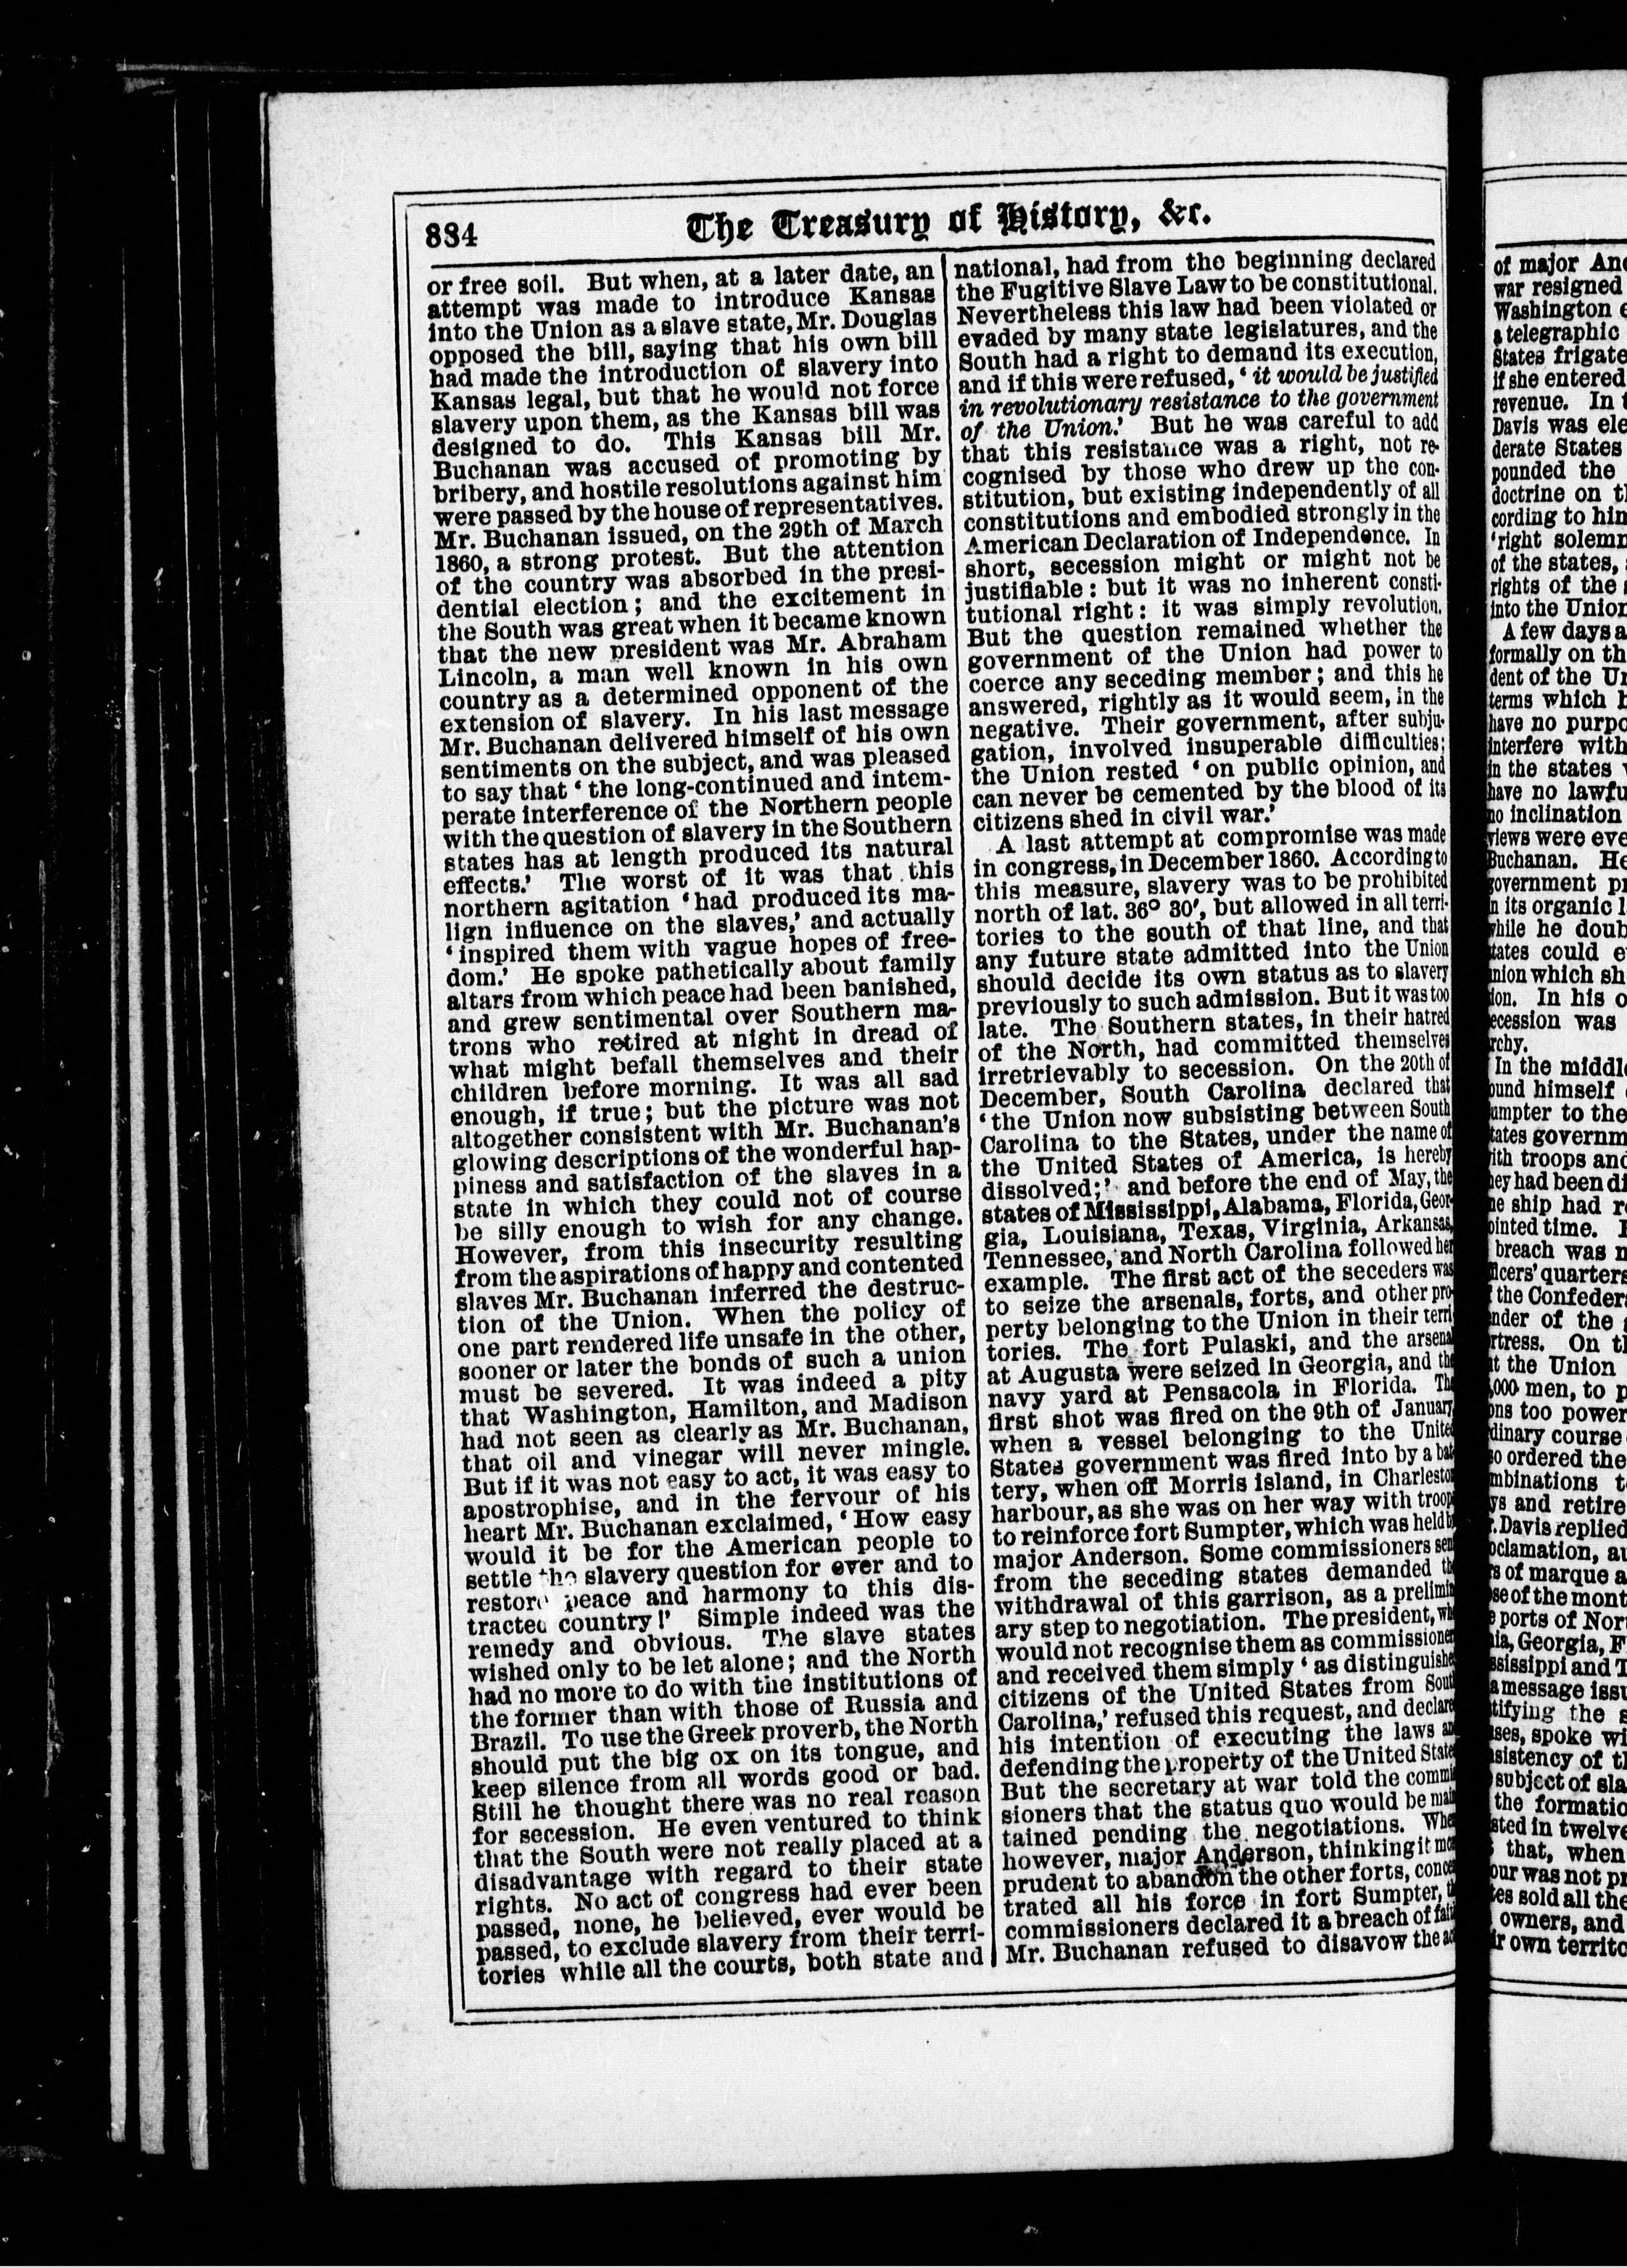 884
The Treasury of History, &c.
or free soil. But when, at a later date, an
attempt was made to introduce Kansas
into the Union as a slave state, Mr. Douglas
opposed the bill, saying that his own bill
had made the introduction of slavery into
Kansas legal, but that he would not force
slavery upon them, as the Kansas bill was
designed to do. This Kansas bill Mr.
Buchanan was accused of promoting by
bribery, and hostile resolutions against him
were passed by the house of representatives.
Mr. Buchanan issued, on the 29th of March
1860, a strong protest. But the attention
of the country was absorbed in the presi-
dential election; and the excitement in
the South was great when it became known
that the new president was Mr. Abraham
Lincoln, a man well known in his own
country as a determined opponent of the
extension of slavery. In his last message
Mr. Buchanan delivered himself of his own
sentiments on the subject, and was pleased
to say that ‘the long-continued and intem-
perate interference of the Northern people
with the question of slavery in the Southern
states has at length produced its natural
effects.’ The worst of it was that this
northern agitation ‘had produced its ma-
lign influence on the slaves,’ and actually
‘inspired them with vague hopes of free-
dom.’ He spoke pathetically about family
altars from which peace had been banished,
and grew sentimental over Southern ma-
trons who retired at night in dread of
what might befall themselves and their
children before morning. It was all sad
enough, if true; but the picture was not
altogether consistent with Mr. Buchanan's
glowing descriptions of the wonderful hap-
piness and satisfaction of the slaves in a
state in which they could not of course
be silly enough to wish for any change.
However, from this insecurity resulting
from the aspirations of happy and contented
slaves Mr. Buchanan inferred the destruc-
tion of the Union. When the policy of
one part rendered life unsafe in the other,
sooner or later the bonds of such a union
must be severed. It was indeed a pity
that Washington, Hamilton, and Madison
had not seen as clearly as Mr. Buchanan,
that oil and vinegar will never mingle.
But if it was not easy to act, it was easy to
apostrophise, and in the fervour of his
heart Mr. Buchanan exclaimed, ‘How easy
would it be for the American people to
settle the slavery question for ever and to
restore peace and harmony to this dis-
tracted country!’ Simple indeed was the
remedy and obvious. The slave states
wished only to be let alone; and the North
had no more to do with the institutions of
the former than with those of Russia and
Brazil. To use the Greek proverb, the North
should put the big ox on its tongue, and
keep silence from all words good or bad.
Still he thought there was no real reason
for secession. He even ventured to think
that the South were not really placed at a
disadvantage with regard to their state
rights. No act of congress had ever been
passed, none, he believed, ever would be
passed, to exclude slavery from their terri-
tories while all the courts, both state and
national, had from the beginning declared
the Fugitive Slave Law to be constitutional.
Nevertheless this law had been violated or
evaded by many state legislatures, and the
South had a right to demand its execution,
and if this were refused, ‘it would be justified
in revolutionary resistance to the government
of the Union.’ But he was careful to add
that this resistance was a right, not re-
cognised by those who drew up the con-
stitution, but existing independently of all
constitutions and embodied strongly in the
American Declaration of Independence. In
short, secession might or might not be
justifiable: but it was no inherent consti-
tutional right: it was simply revolution.
But the question remained whether the
government of the Union had power to
coerce any seceding member; and this he
answered, rightly as it would seem, in the
negative. Their government, after subju-
gation, involved insuperable difficulties;
the Union rested ‘on public opinion, and
can never be cemented by the blood of its
citizens shed in civil war.’
A last attempt at compromise was made
in congress, in December 1860. According to
this measure, slavery was to be prohibited
north of lat. 36° 30', but allowed in all terri-
tories to the south of that line, and that
any future state admitted into the Union
should decide its own status as to slavery
previously to such admission. But it was too
late. The Southern states, in their hatred
of the North, had committed themselves
irretrievably to secession. On the 20th of
December, South Carolina declared that
‘the Union now subsisting between South
Carolina to the States, under the name of
the United States of America, is hereby
dissolved;’ and before the end of May, the
states of Mississippi, Alabama, Florida, Geor-
gia, Louisiana, Texas, Virginia, Arkansas,
Tennessee, and North Carolina followed her
example. The first act of the seceders was
to seize the arsenals, forts, and other pro-
perty belonging to the Union in their terri
tories. The fort Pulaski, and the arsenal
at Augusta were seized in Georgia, and the
navy yard at Pensacola in Florida. The
first shot was fired on the 9th of January,
when a vessel belonging to the United
States government was fired into by a bat
tery, when off Morris island, in Charleston
harbour, as she was on her way with troops
to reinforce fort Sumpter, which was held by
major Anderson. Some commissioners sent
from the seceding states demanded the
withdrawal of this garrison, as a prelimin
ary step to negotiation. The president, who
would not recognise them as commissioners
and received them simply ‘as distinguished
citizens of the United States from South
Carolina,’ refused this request, and declared
his intention of executing the laws and
defending the property of the United States
But the secretary at war told the commis
sioners that the status quo would be main
tained pending the negotiations. When
however, major Anderson, thinking it more
prudent to abandon the other forts, concen
trated all his force in fort Sumpter, the
commissioners declared it a breach of faith
Mr. Buchanan refused to disavow the act
of major
war resigned
Washington
telegraphic
States frigate
if she entered
revenue. In
Davis was
derate States
pounded the
doctrine on
cording to
‘right
of the states,
rights of the
into the Union
A few days
formally on
dent of the
terms which
have no
interfere with
in the states
have no
no inclination
views were
Buchanan.
government
in its organic
while he
states could
union which
In his
secession was
In the
himself
to the
troops and
had been
ship had
time.
breach was
quarters
the
of the
On
the Union
men, to
too power
course
ordered the
and retire
Davis replied
of marque
of the
ports of
Georgia,
and
message
the
spoke
of
subject of
the
in twelve
that, when
was not
sold all the
owners, and
own